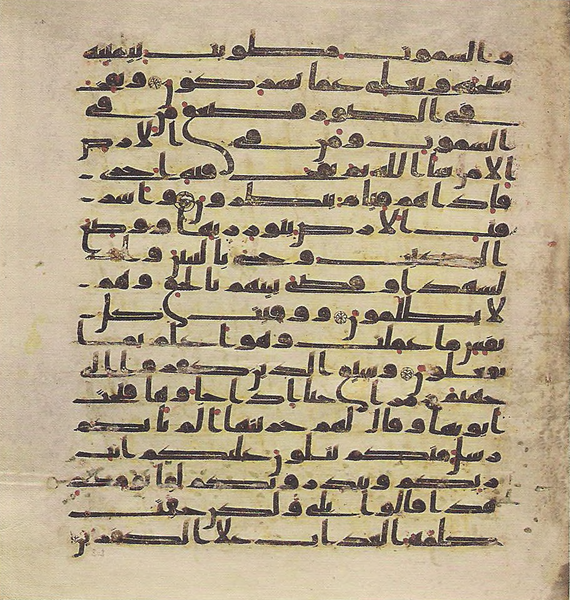 والسموت مطويت بيمينه
سبحنه وتعلى عما يشركون ونفخ
في الصور فصعق من في
السموت ومن في الارض
الا من شا الله ثم نفخ فيه اخرى
فاذا هم قيام ينظرون واشر
قت الارض بنور ربها ووضع
الكتب وجاي بالنبين وا
لشهدا وقضي بينهم بالحق وهم
لا يظلمون ووفيت كل
نفس ما عملت وهو اعلم بما
يفعلون وسيق الذين كفروا الى
جهنم زمرا حتى اذا جاوها فتحت
ابوبها وقال لهم خزنتها الم ياتكم
رسل منكم يتلون عليكم ايت
ربكم وينذرونكم لقا يومكم
هذا قالوا بلى ولكن حقت
كلمه العذاب على الكفرين